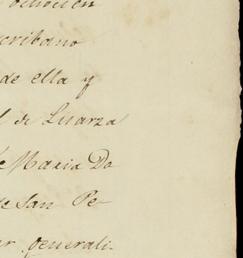 scribano
de ella y
de Luarza
Maria Do
de San Pe-
generali-